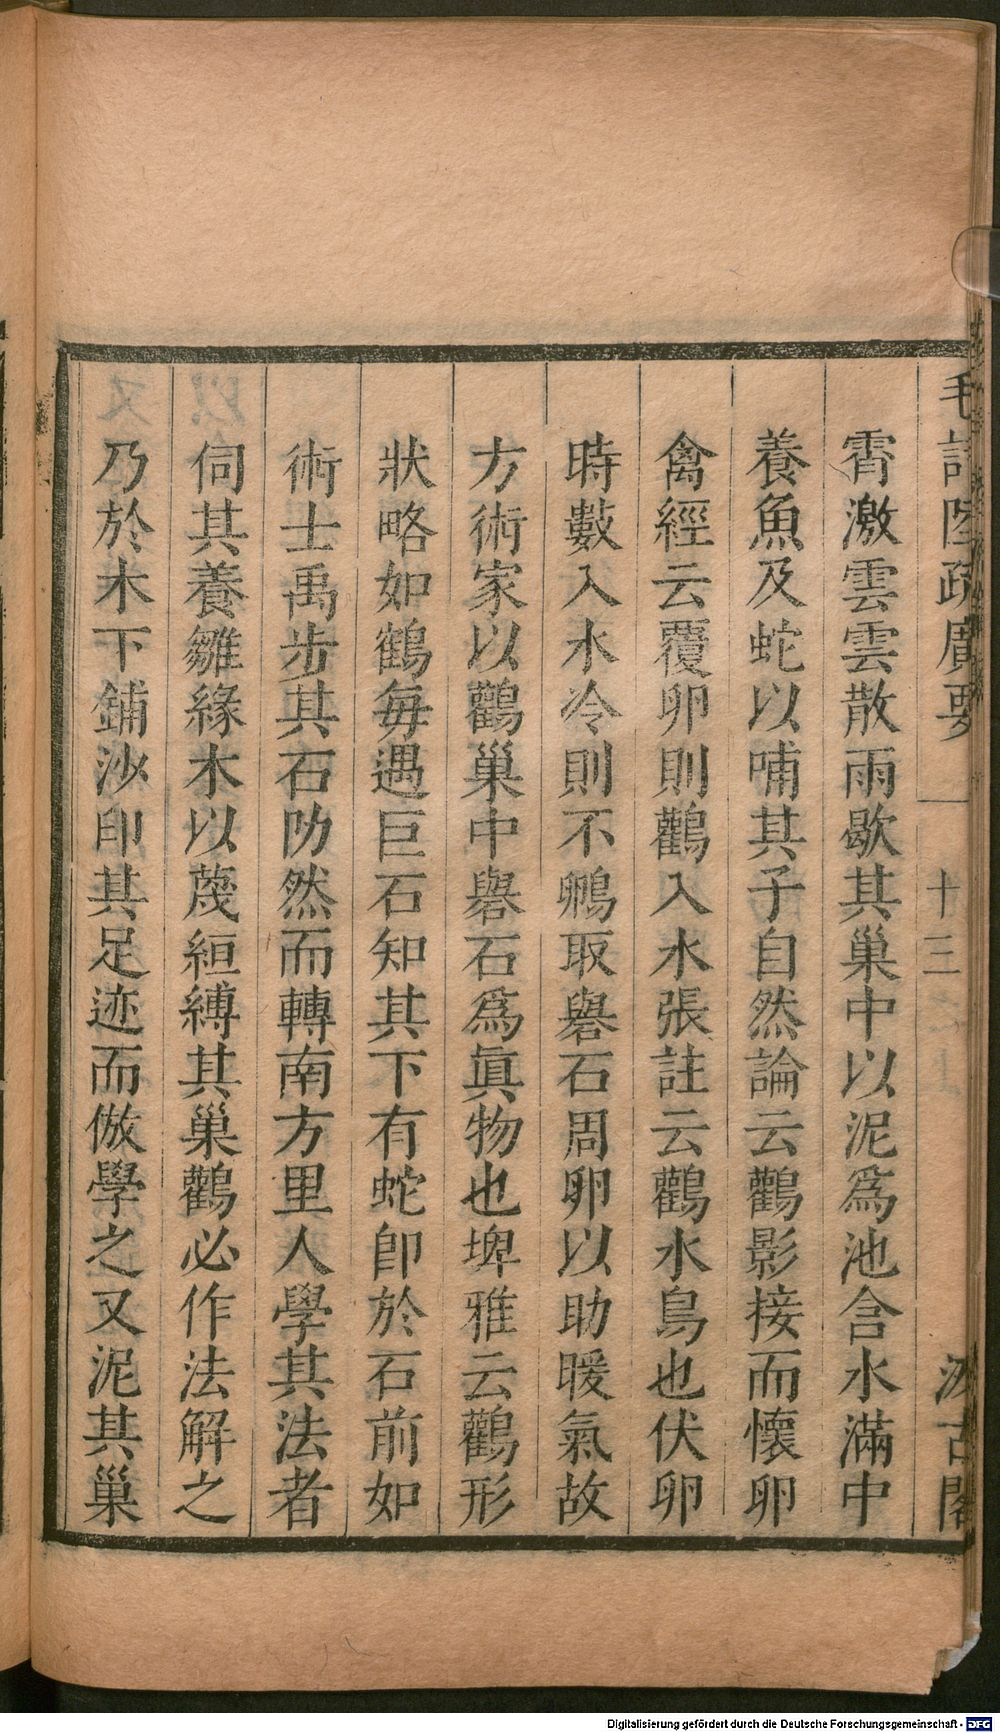 毛詩陸疏廣要
十三
汲古閣
霄激雲雲散雨歇其巢中以泥爲池含水滿中
養魚及蛇以哺其子自然論云鸛影接而懷卵
禽經云覆卵則鸛入水張註云鸛水鳥也伏卵
時數入水冷則不鶳取礜石周卵以助暖氣故
方術家以鸛巢中礜石爲眞物也埤雅云鸛形
狀略如鶴每遇巨石知其下有蛇卽於石前如
術士禹步其石阞然而轉南方里人學其法者
伺其養雛緣木以篾縆縛其巢鸛必作法解之
乃於木下鋪沙印其足迹而倣學之又泥其巢
Digitalisierung gefördert durch die Deutsche Forschungsgemeinschaft - DFG